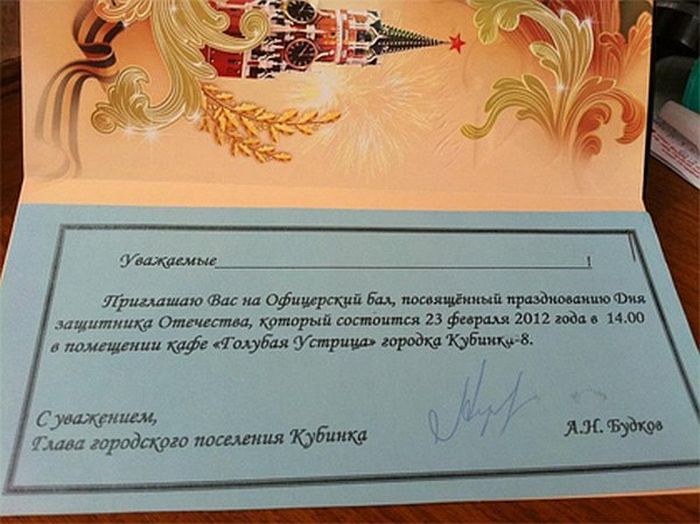 Уважаемые______________________________!
Приглашаю Вас на Офицерский бал, посвящённый празднованию Дня
защитника Отечества, который состоится 23 февраля 2012 года в 14.00
в помещении кафе «Голубая Устрица» городка Кубинки-8.
С уважением,
Глава городского поселения Кубинка
А.Н. Будков